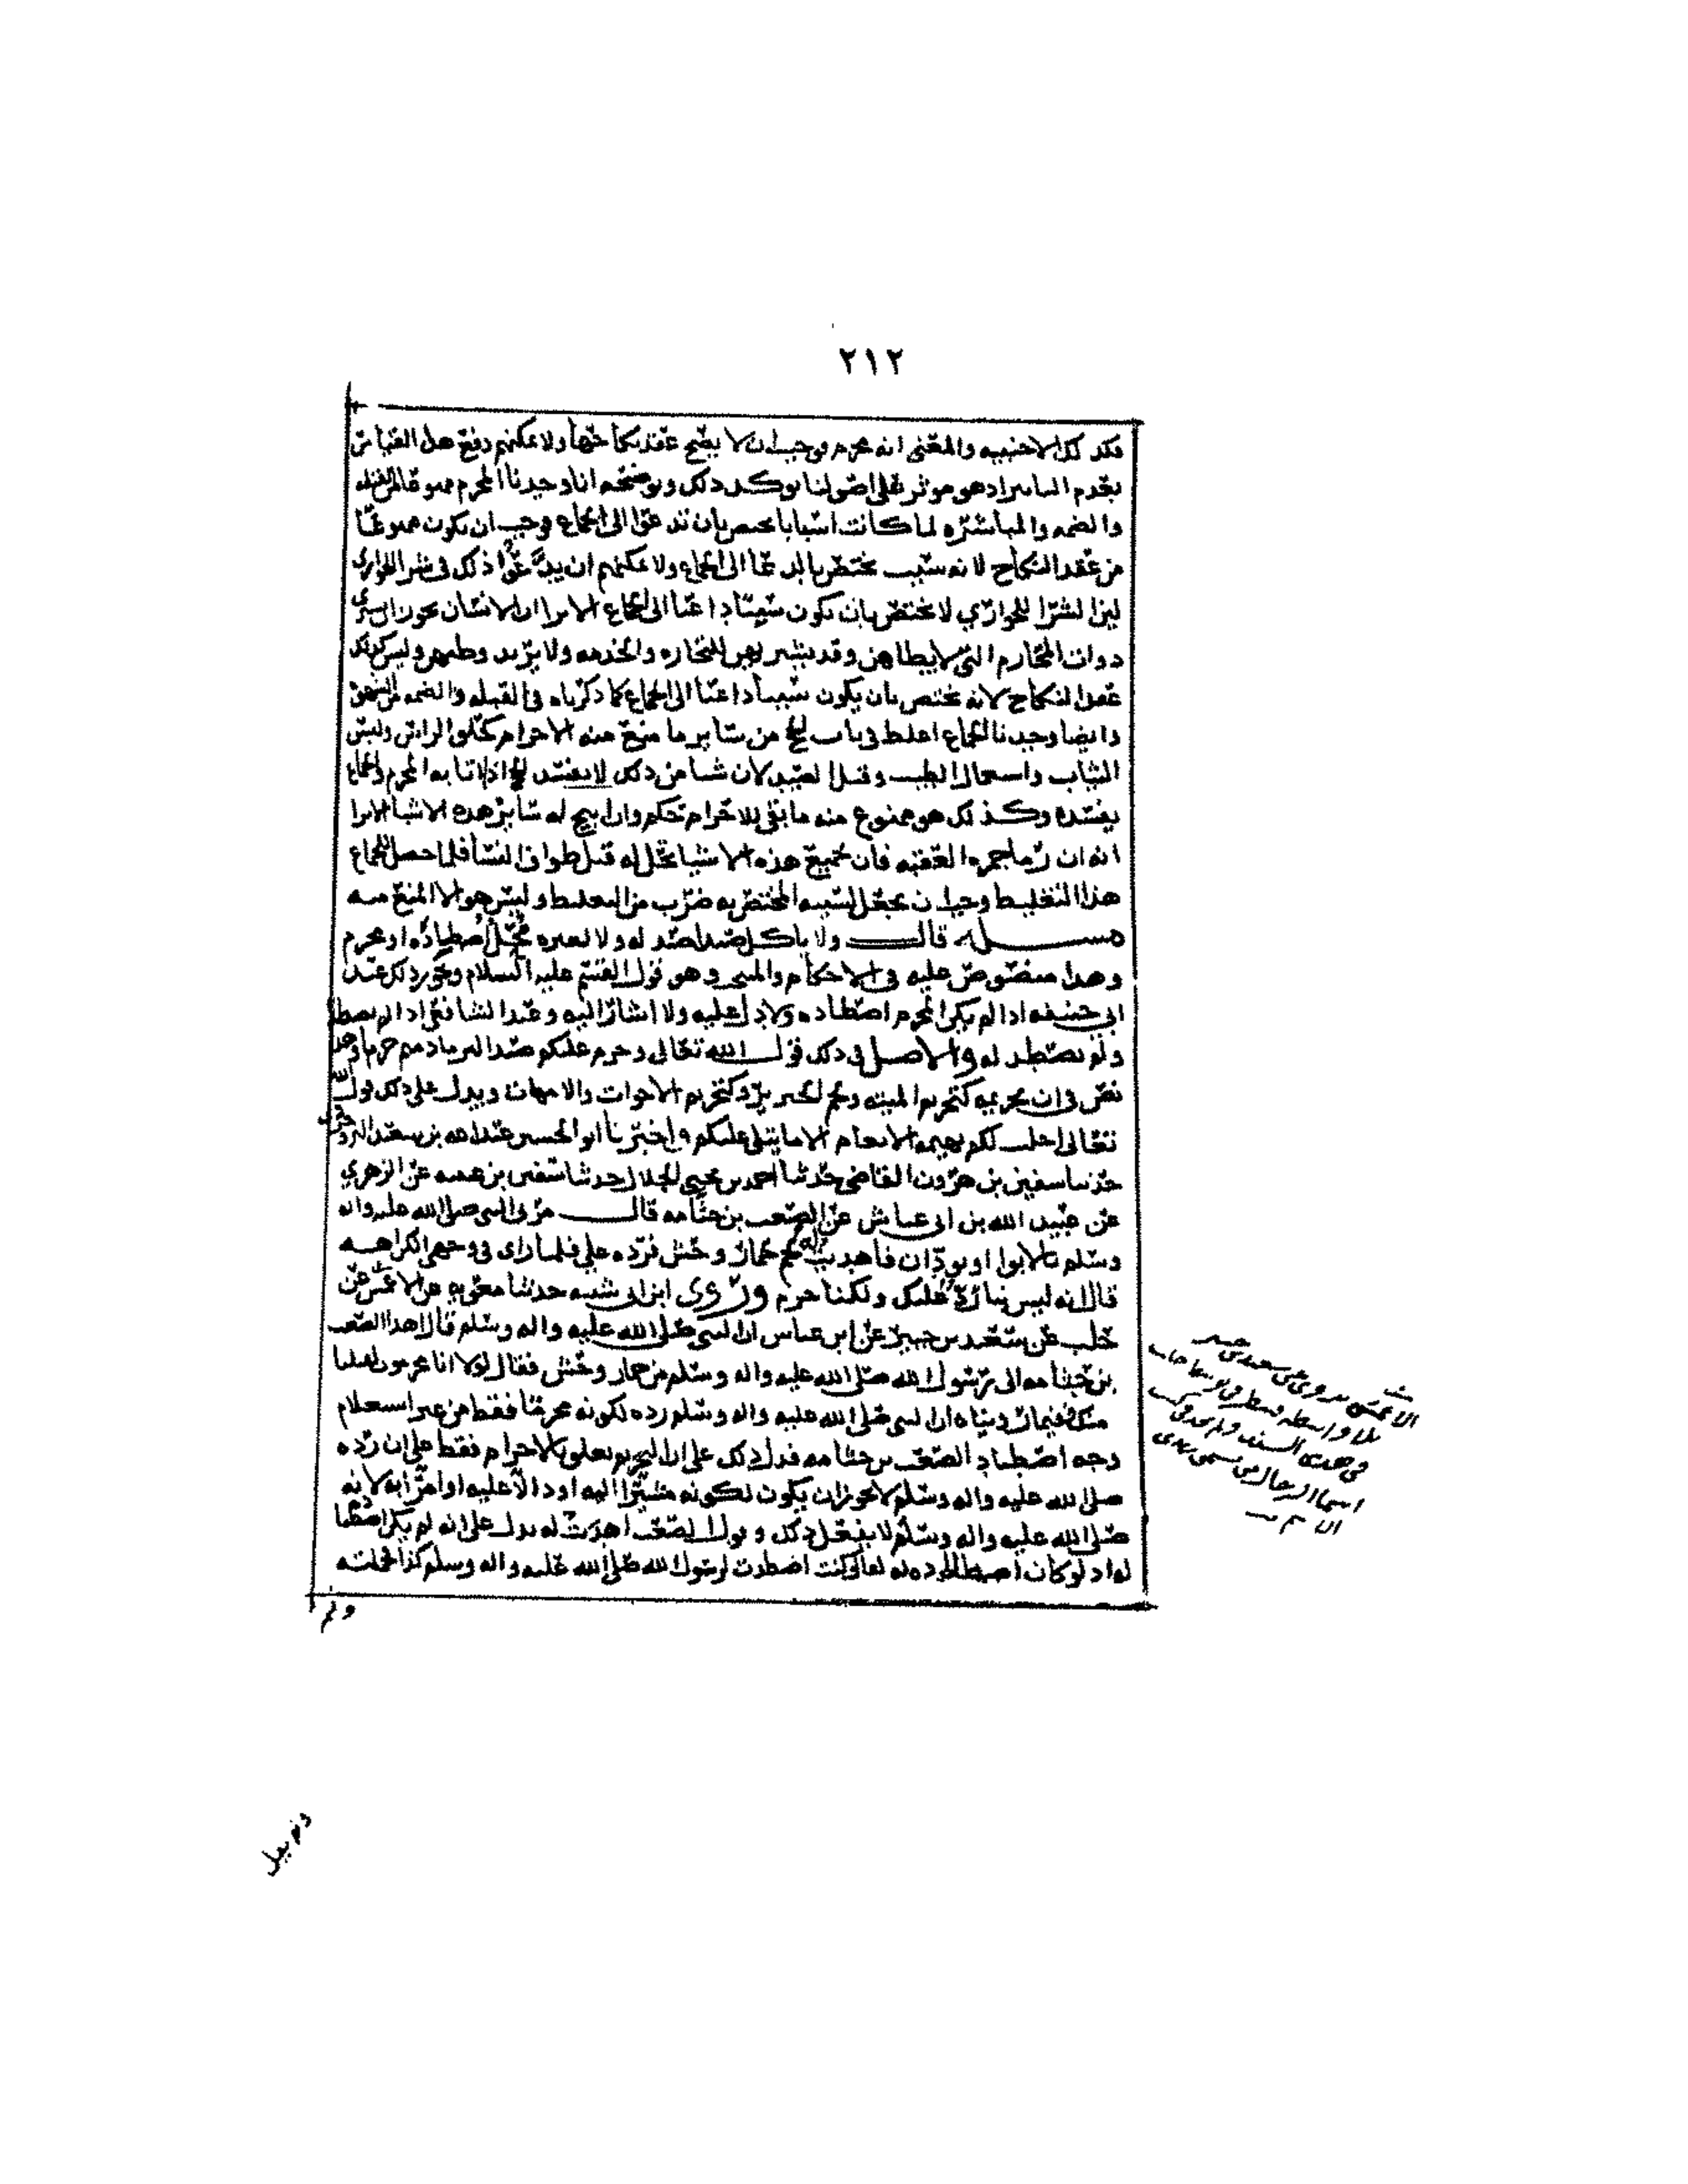 ٢١٢
فكذلك الاجنبيه والمعنى انه محرم فوجب ان لا يصح عقد نكاحها ولا يمكنهم دفع هذا القياس
بعدم التاثير اذ هو موثر على اصولنا يوكد ذلك ويوضحه انا وجدنا المحرم ممنوعا من القبله
والضمه والمباشره لما كانت اسبابا تختص بان تدعوا الى الجماع فوجب ان يكون ممنوعا
من عقد النكاح لانه سبب يختص بالدعا الى الجماع ولا يمكنهم ان يدعوا ذلك في شرا الجواري
لان الشرا للجواري لا يختص بان يكون سببا داعيا الى الجماع الا ترا ان الانسان يجوز ان يشتري
ذوات المحارم التي لا يطاهن وقد يشتريهن للتجاره والخدمه ولا يريد وطيهن وليس كذلك
عقد النكاح لانه يختص بان يكون سببا داعيا الى الجماع كما ذكرناه في القبله والضمه
وايضا وجدنا الجماع اغلظ في باب الحج من ساير ما منع منه الاحرام كحلق الراس ولبس
الثياب واستعمال الطيب وقتل الصيد لان شيا من ذلك لا يفسد الحج اذا اتا به المحرم والجماع
يفسده وكذلك هو ممنوع منه ما بقي للاحرام حكم وان ابيح له ساير هذه الاشيا الا ترا
انه ان رما جمرة العقبه فان جميع هذه الاشيا تحل له قبل طواف النسا فلما حصل للجماع
هذا التغليظ وجب ان يجعل لسببه المختص به ضرب من التغليظ وليس هو الا المنع منه
مسئله قال ولا ياكل صيدا صيد له ولا لغيره محل اصطياده او محرم
وهذا منصوص عليه في الاحكام والمنتخب وهو قول القسم عليه السلام ويجوز ذلك عند
ابي حنيفه اذا لم يكن المحرم اصطاده ولا دل عليه ولا اشار اليه وعند الشافعي اذا لم يصطد
ولم يصطد له والاصل في ذلك قول الله تعالى وحرم عليكم صيد البر ما دمتم حرما وهذا
نص في ان تحريمه كتحريم الميته ولحم الخنزير وكتحريم الاخوات والامهات ويدل على ذلك قول الله
تعالى احلت لكم بهيمه الانعام الا ما يتلى عليكم واخبرنا ابو الحسين عبد الله بن سعيد البروجردي
حدثنا سفين بن هرون القاضي حدثنا احمد بن يحيى الجلاب حدثنا سفين بن عيينه عن الزهري
عن عبيد الله بن ابي عباس عن الصعب بن جثامه قال مر بي النبي صلى الله عليه واله
وسلم بالابوا او بودان فاهديت له لحم حمار وحش فرده علي فلما راى في وجهي الكراهيه
قال انه ليس بنا رد عليك ولكنا حرم وروى ابن ابي شيبه حدثنا معويه عن الاعمش عن
حبيب عن سعيد بن جبير عن ابن عباس ان النبي صلى الله عليه واله وسلم قال اهدا الصعب
بن جثامه الى رسول الله صلى الله عليه واله وسلم من حمار وحش فقال لولا انا محرمون لقبلنا
منك ففيما رويناه ان النبي صلى الله عليه واله وسلم رده لكونه محرما فقط من غير استعلام
وجه اصطياد الصعب بن جثامه فدل ذلك على ان التحريم يعلق بالاحرام فقط على ان رده
صلى الله عليه واله وسلم لا يجوز ان يكون لكونه مشيرا اليه او دالا عليه او امرا به لانه
صلى الله عليه واله وسلم لا يفعل ذلك وقول الصعب اهديت له يدل على انه لم يكن اصطيا
له اذ لو كان اصطياده له لقال كنت اصطدت لرسول الله صلى الله عليه واله وسلم كذا فحملته
ولم
الاعمش يروي عن سعيد بن جبير
بلا واسطه
في هذا السند
اسما الرجال